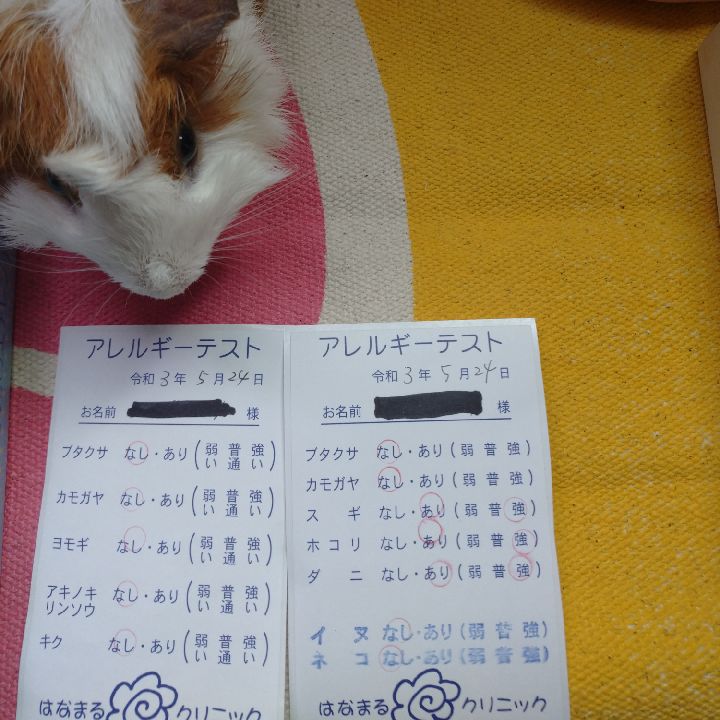 アレルギーテスト
令和 3 年 5 月 24 日
お名前 様
ブタクサ なし・あり(弱い 普通 強い)
カモガヤ なし・あり(弱い 普通 強い)
ヨモギ なし・あり(弱い 普通 強い)
アキノキリンソウ なし・あり(弱い 普通 強い)
キク なし・あり(弱い 普通 強い)
はなまる クリニック
アレルギーテスト
令和 3 年 5 月 24 日
お名前 様
ブタクサ なし・あり(弱 普 強)
カモガヤ なし・あり(弱 普 強)
スギ なし・あり(弱 普 強)
ホコリ なし・あり(弱 普 強)
ダニ なし・あり(弱 普 強)
イヌ なし・あり(弱 普 強)
ネコ なし・あり(弱 普 強)
はなまる クリニック